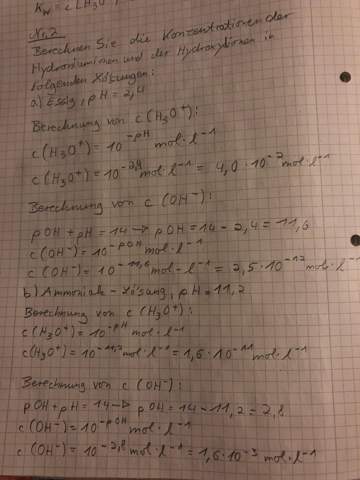 Kw = c (H₃O⁺
Nr. 2
Berechnen Sie die Konzentrationen der
Hydroniumionen und der Hydroxidionen in
folgenden Lösungen:
a) Essig, pH = 2,4
Berechnung von c(H₃O⁺):
c(H₃O⁺) = 10^-pH mol·l⁻¹
c(H₃O⁺) = 10^-2,4 mol·l⁻¹ = 4,0·10⁻³ mol·l⁻¹
Berechnung von c(OH⁻):
pOH + pH = 14 → pOH = 14 - 2,4 = 11,6
c(OH⁻) = 10^-pOH mol·l⁻¹
c(OH⁻) = 10^-11,6 mol·l⁻¹ = 2,5·10⁻¹² mol·l⁻
b) Ammoniak-Lösung, pH = 11,2
Berechnung von c(H₃O⁺):
c(H₃O⁺) = 10^-pH mol·l⁻¹
c(H₃O⁺) = 10^-11,2 mol·l⁻¹ = 1,6·10⁻¹¹ mol·l⁻¹
Berechnung von c(OH⁻):
pOH + pH = 14 → pOH = 14 - 11,2 = 2,8
c(OH⁻) = 10^-pOH mol·l⁻¹
c(OH⁻) = 10^-2,8 mol·l⁻¹ = 1,6·10⁻³ mol·l⁻¹